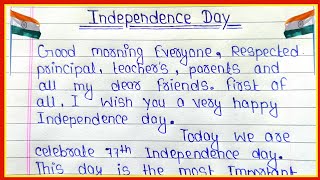 Independence Day
Good morning Everyone, Respected
principal, teacher's, parents and
all my dear friends. First of
all, I wish you a very happy
Independence day.
Today we are
celebrate 77th Independence day.
This day is the most Important